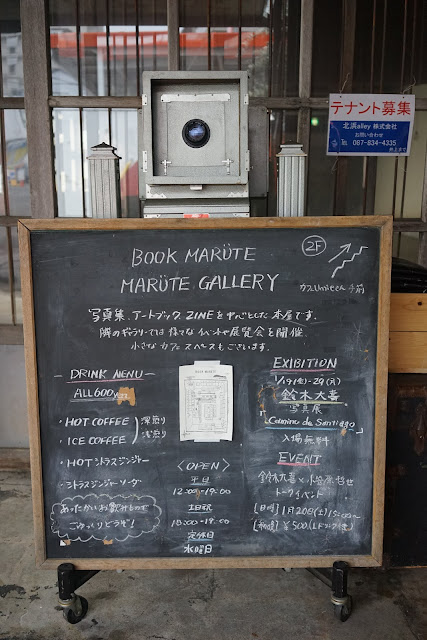 テナント募集
北浜alley 株式会社
お問い合わせ
087-834-4335
2F
BOOK MARÜTE
MARÜTE GALLERY
カフェumieさん手前
写真集、アートブック、ZINEを中心とした本屋です。
隣のギャラリーでは様々なイベントや展覧会を開催
小さなカフェスペースもございます。
DRINK MENU
ALL600
・HOT COFFEE
・ICE COFFEE
深煎り
浅煎り
・HOTシトラスジンジャー
・シトラスジンジャーソーダ
あったかいお飲みもので
ごゆっくりどうぞ!
BOOK MARUTE
<OPEN>
平日
12:00-19:00
土日祝
定休日
水曜日
EXIBITION
鈴木大喜
写真展
「Camino de Santiago」
入場無料
EVENT
トークイベント
[日時] 1月20日(土)
¥500(1ドリンク付き)